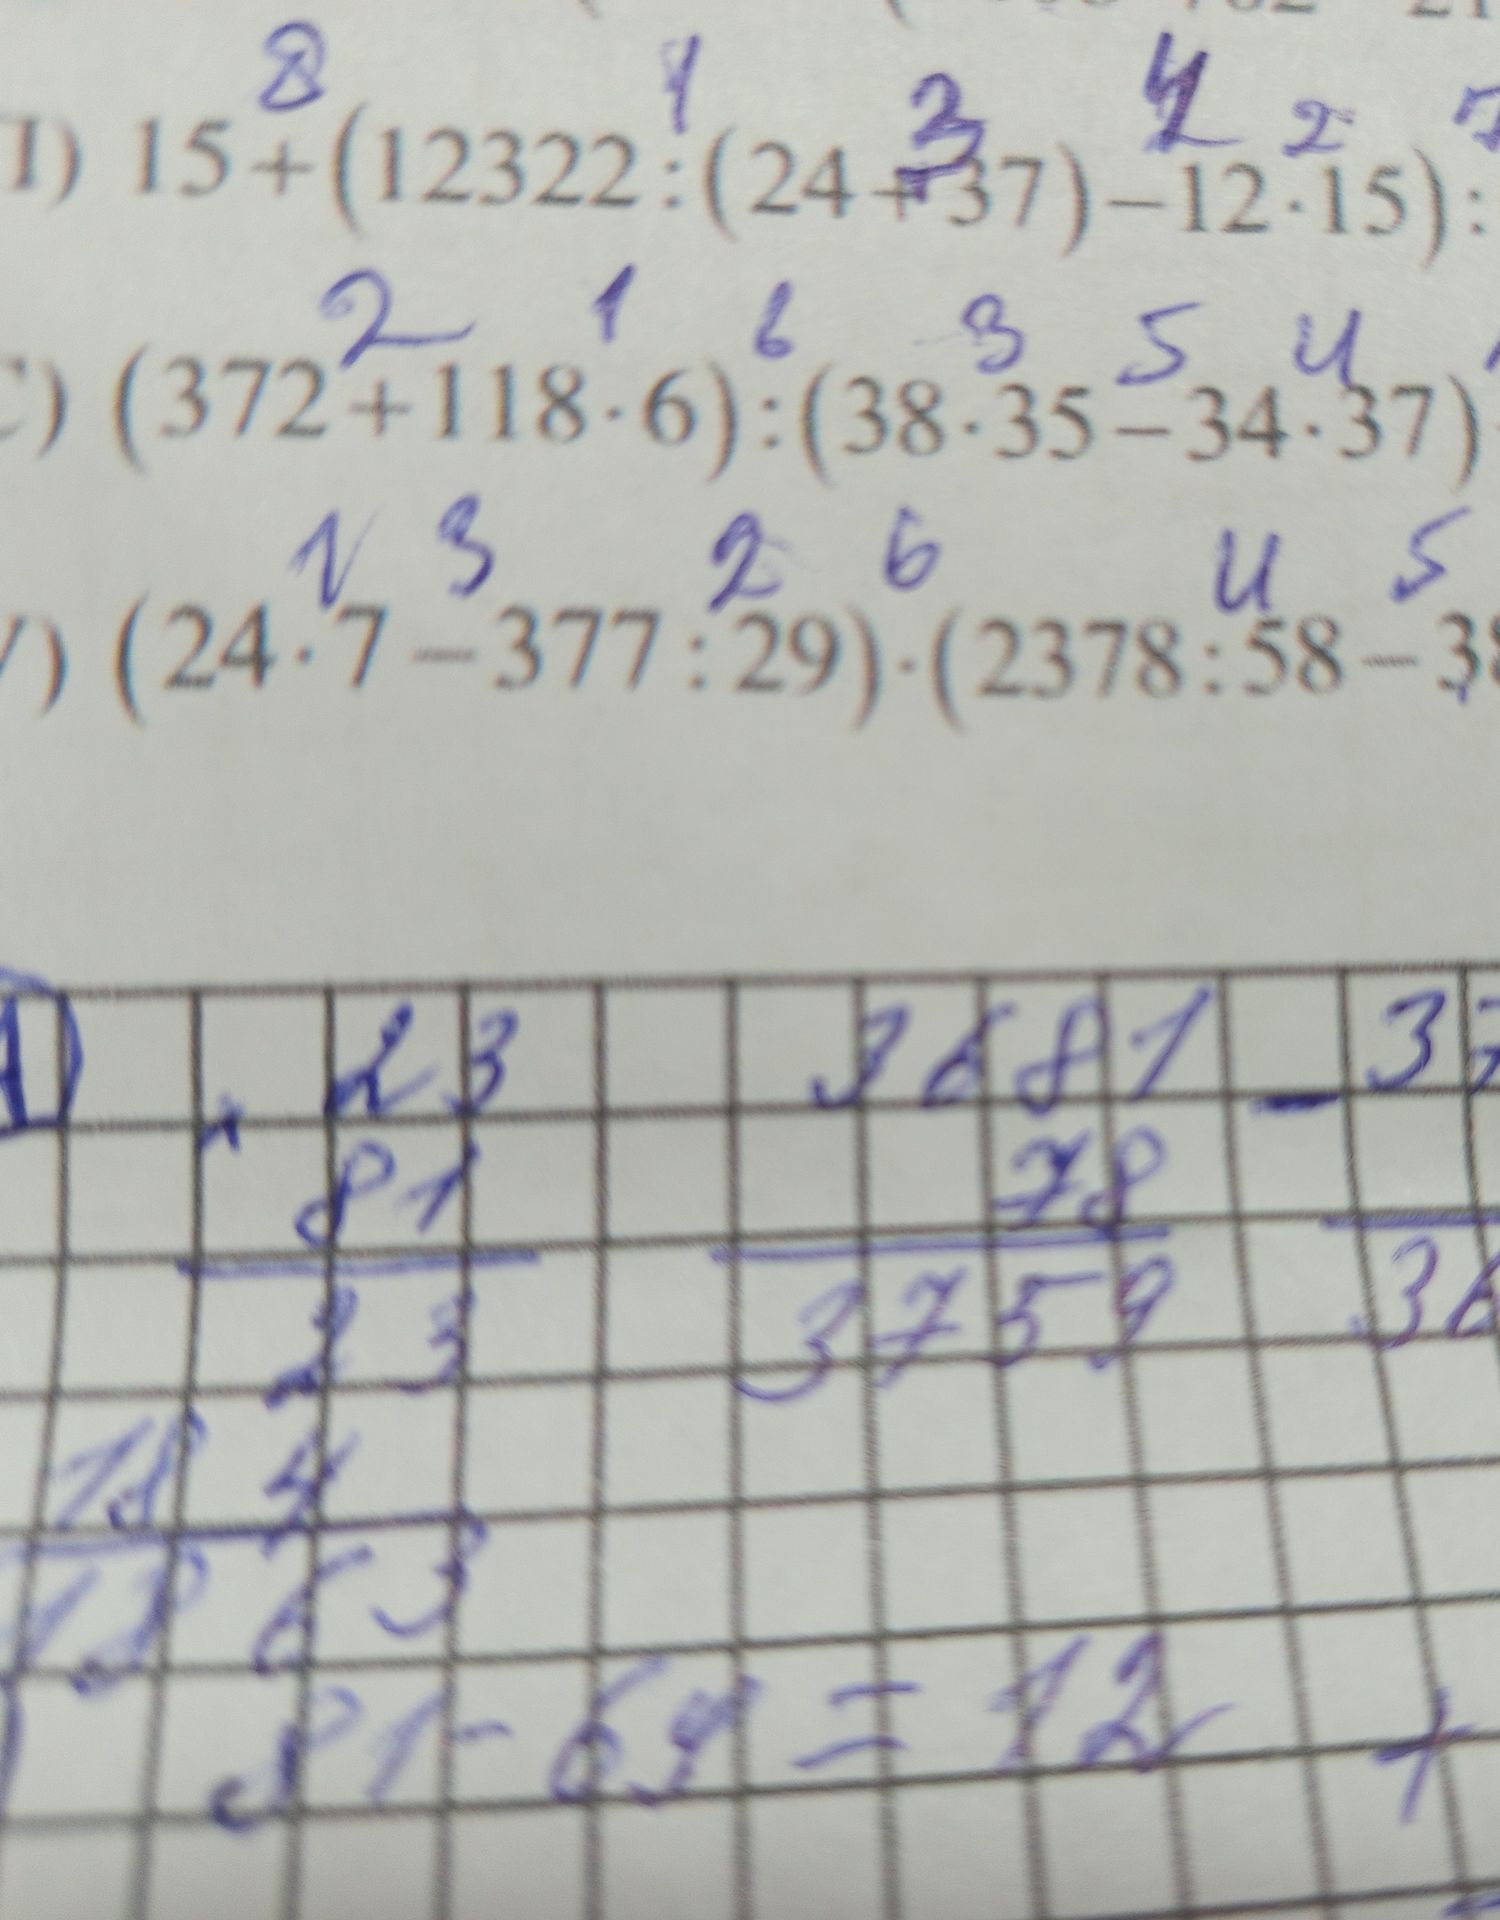 8 1 3 4 2
15+(12322:(24+37)−12·15):
2 1 6 3 5 4
C) (372+118·6):(38·35−34·37)
1 3 2 6 4 5
(24·7−377:29)·(2378:58−38
23 3681 − 37
× 81 78
23 3759 36
184
1863
81-69=12 +